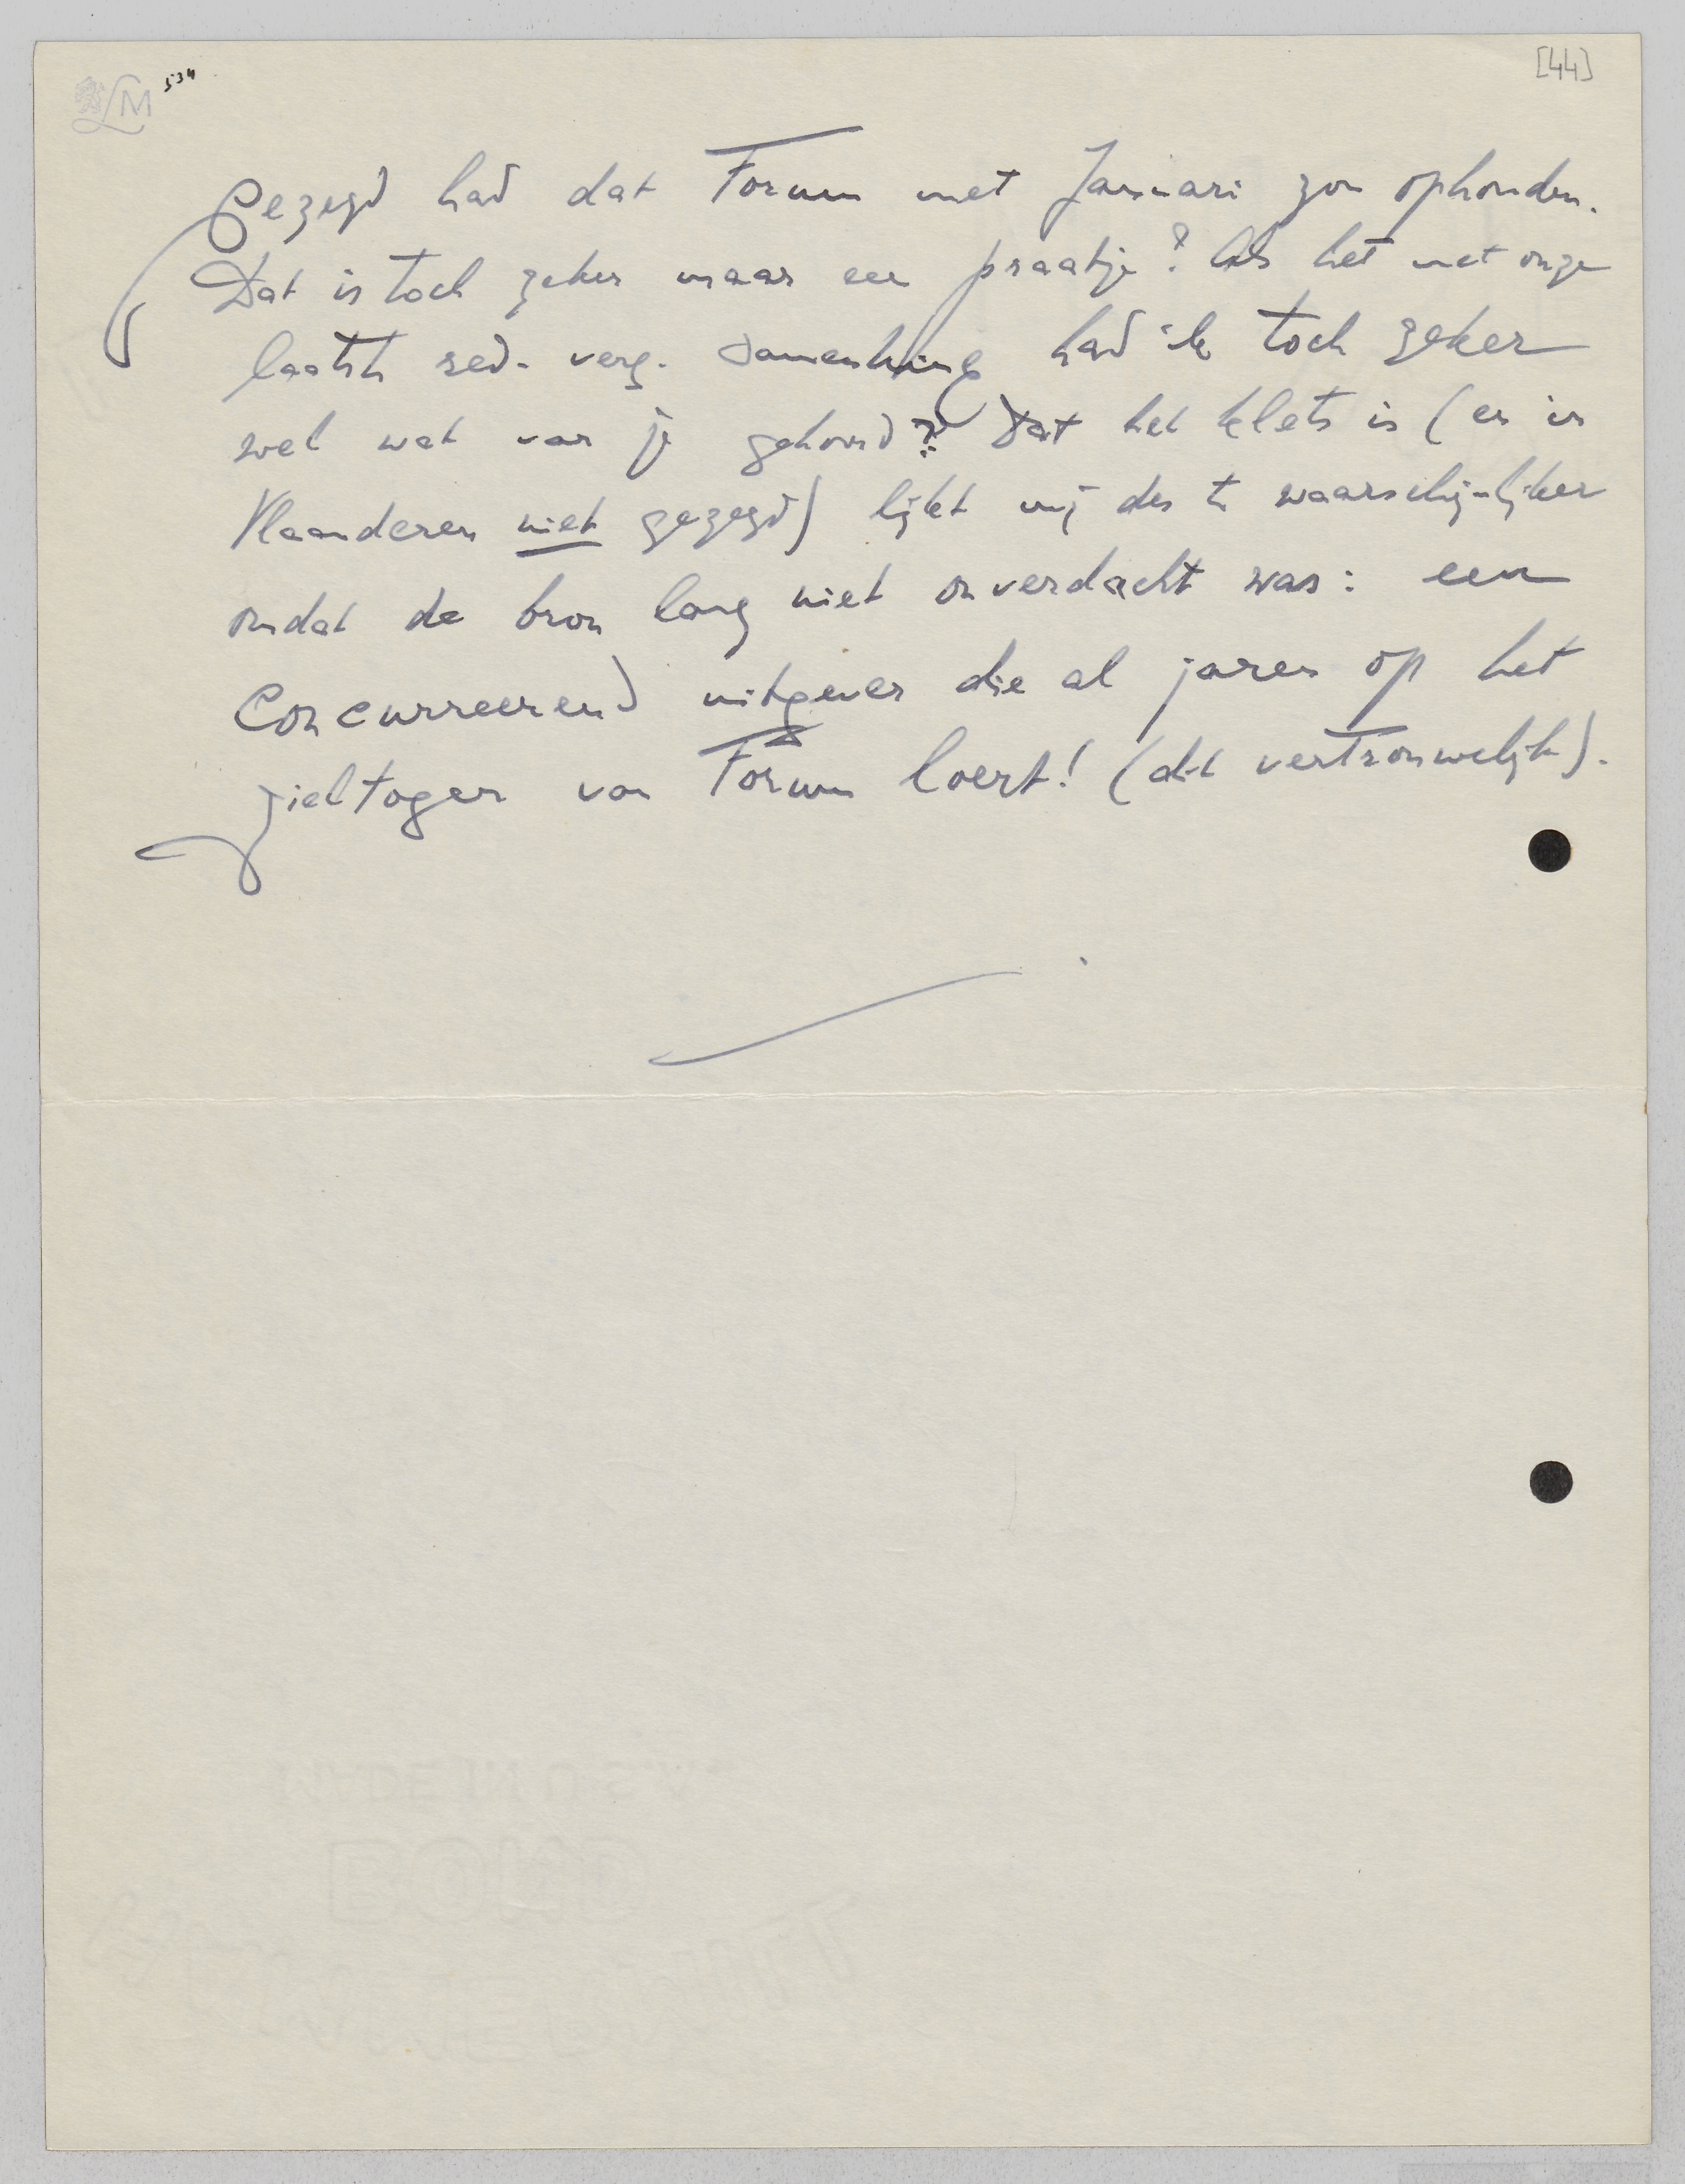 534
[44]
gezegd had dat Forum met Januari zou ophouden.
Dat is toch zeker maar een praatje? Als het met onze
laatste red. verg. samenhing had ik toch zeker
wel wat van je gehoord? Dat het klets is (en in
Vlaanderen niet gezegd) lijkt mij des te waarschijnlijker
omdat de bron lang niet onverdacht was: een
concurreerend uitgever die al jaren op het
zieltogen van Forum loert! (dit vertrouwelijk).
MADE IN U.S.A.
BOND